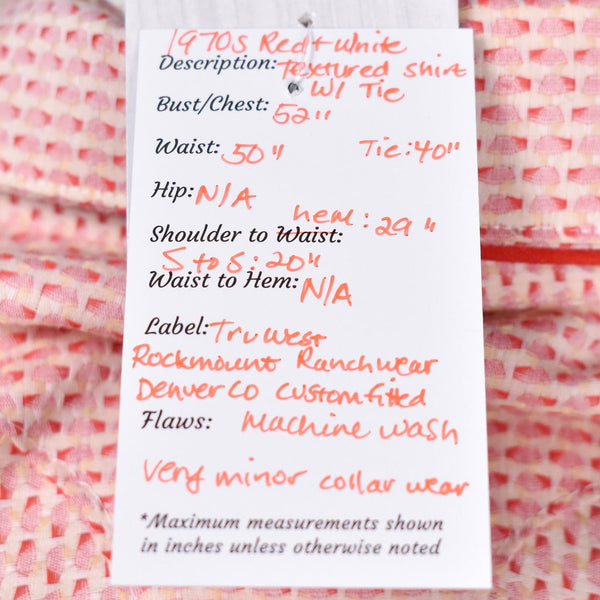 1970s Red + White
Description: Textured shirt
W/ Tie
Bust/Chest: 52"
Waist: 50" Tie: 40"
Hip: N/A
hem: 29"
Shoulder to Waist:
S to S: 20"
Waist to Hem: N/A
Label: Tru West
Rockmount Ranchwear
Denver CO Custom fitted
Flaws: Machine wash
Very minor collar wear
*Maximum measurements shown
in inches unless otherwise noted